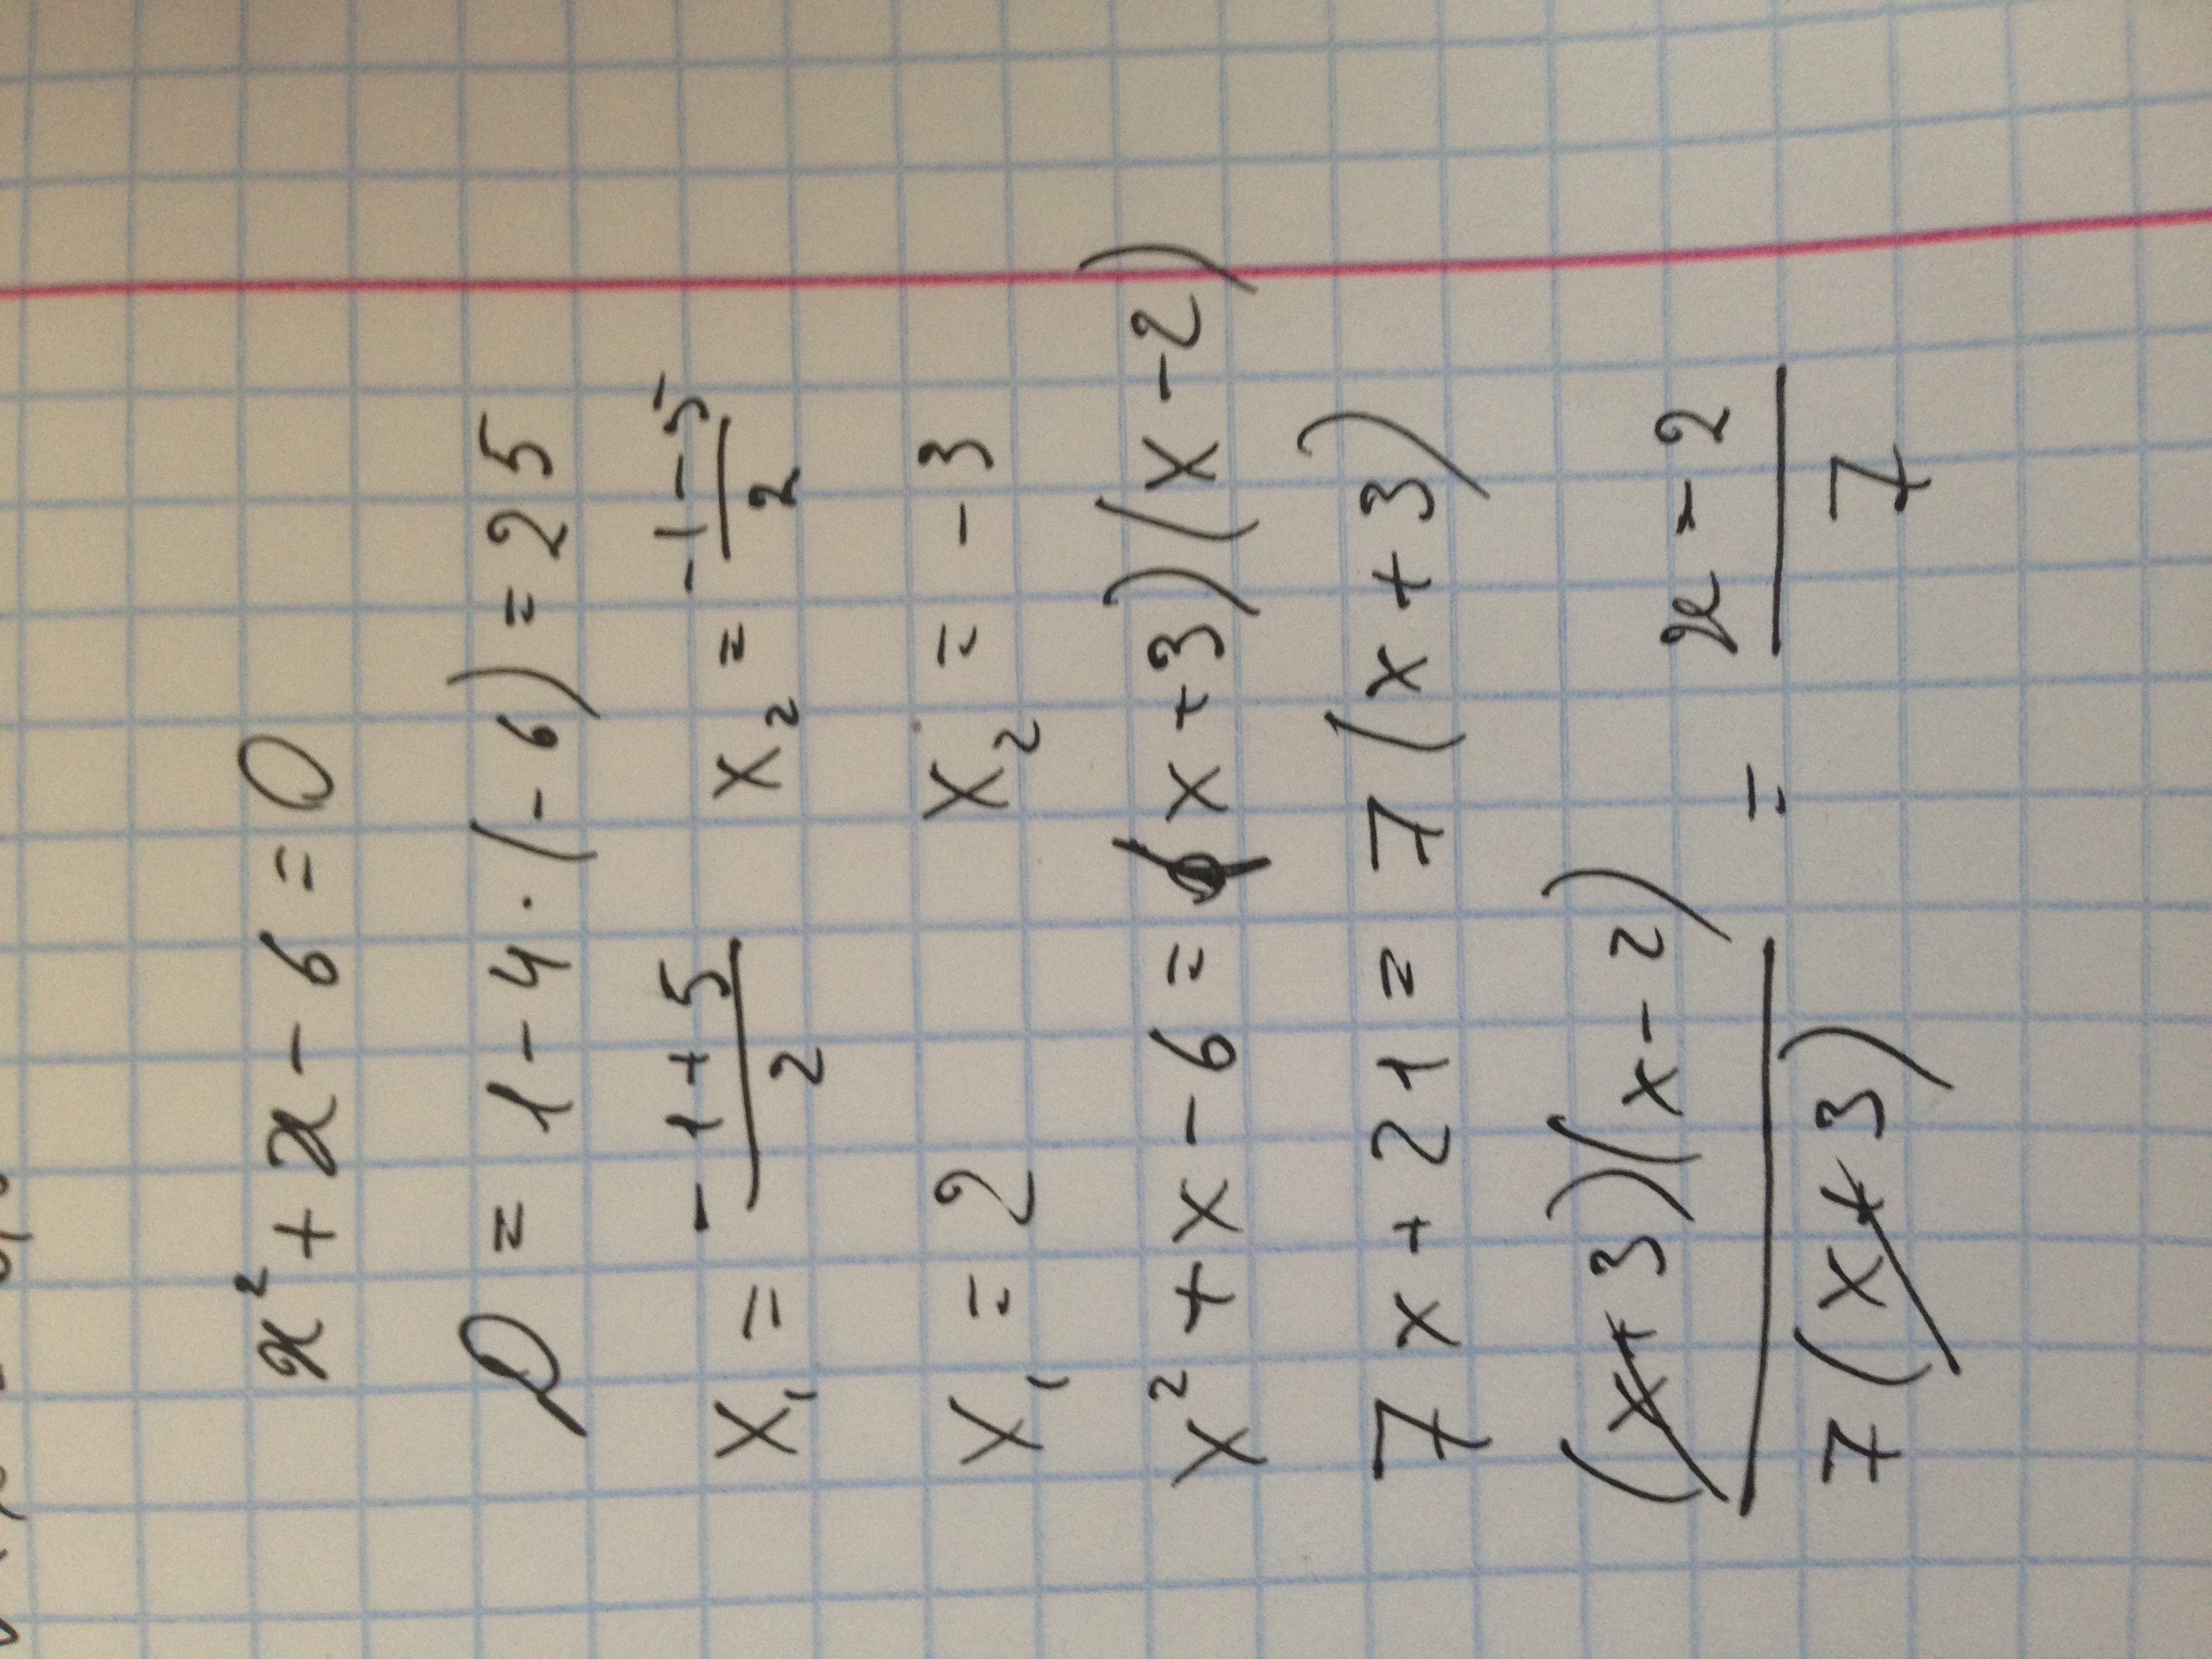 x² + x - 6 = 0
D = 1 - 4 · (-6) = 25
x₁ = (-1+5)/2 x₂ = (-1-5)/2
x₁ = 2 x₂ = -3
x² + x - 6 = (x+3)(x-2)
7x + 21 = 7(x+3)
(x+3)(x-2)/7(x+3) = (x-2)/7